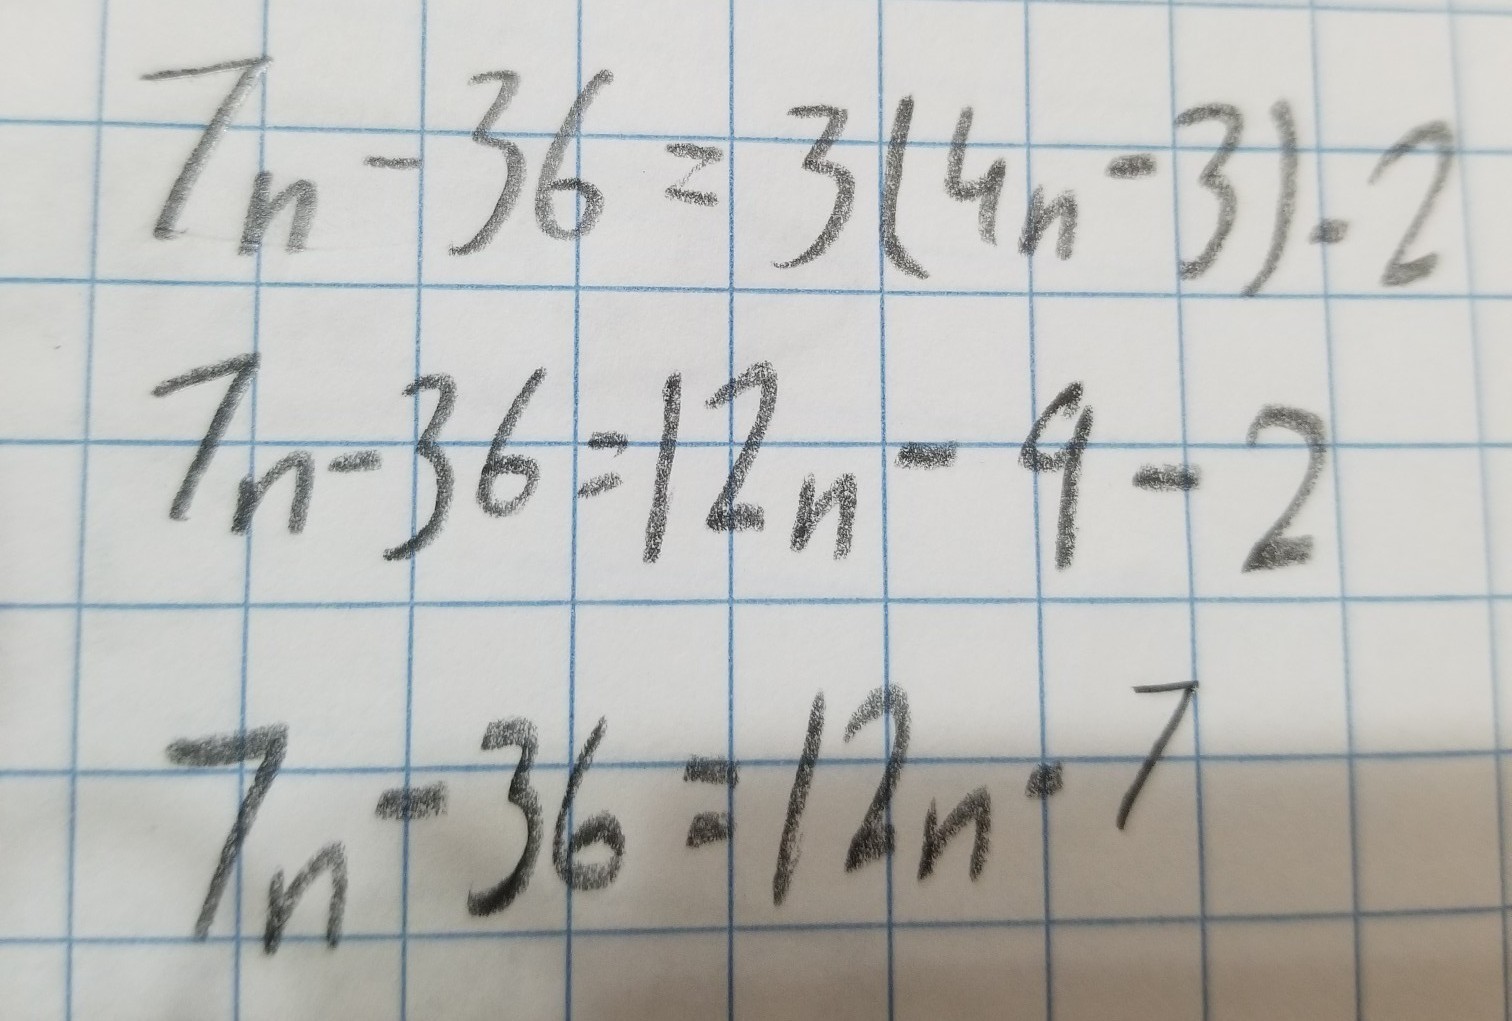 7n - 36 = 3(4n - 3) - 2
7n - 36 = 12n - 9 - 2
7n - 36 = 12n - 7